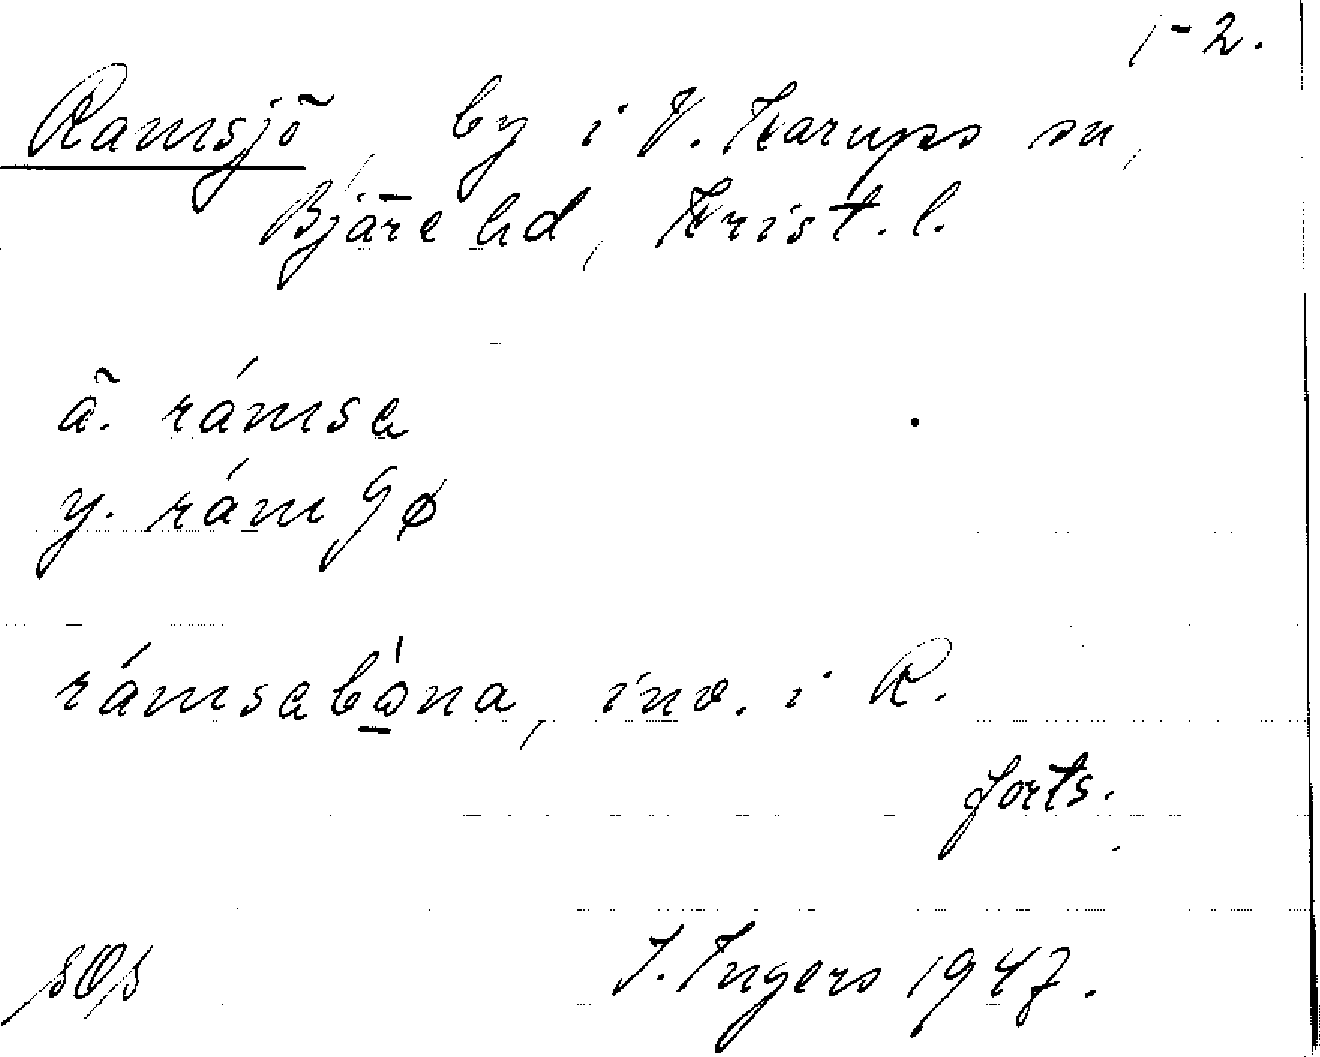 1-2.
Ramsjö, by i V. Karups sn,
Bjäre hd, Krist. l.
ä. rámsa
y. rám ʃø
rámsabǫ́na, inv. i R.
forts.
sOs I. Ingers 1947.